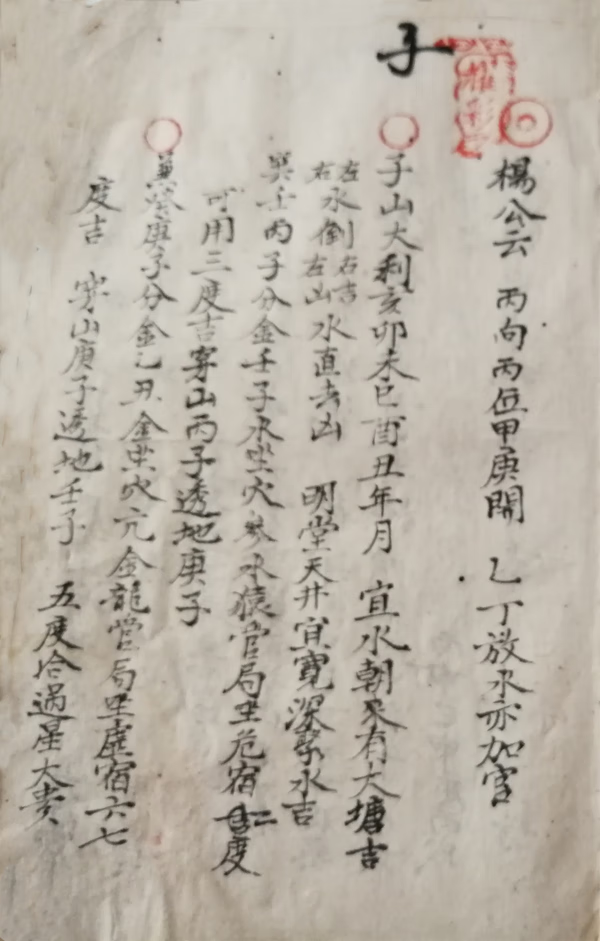 子
楊公云 丙向丙位甲庚開 乙丁放水亦加官
子山大利亥卯未巳酉丑年月 宜水朝來有大塘吉
左右水倒右左 吉山水直去凶 明堂天井宜寬深聚水吉
巽壬丙子分金壬子水坐穴參水猿管局坐危宿二度
可用三度吉穿山丙子透地庚子
癸庚子分金乙丑金坐穴亢金龍管局坐虛宿六七
度吉 穿山庚子透地壬子 五度合過星大貴